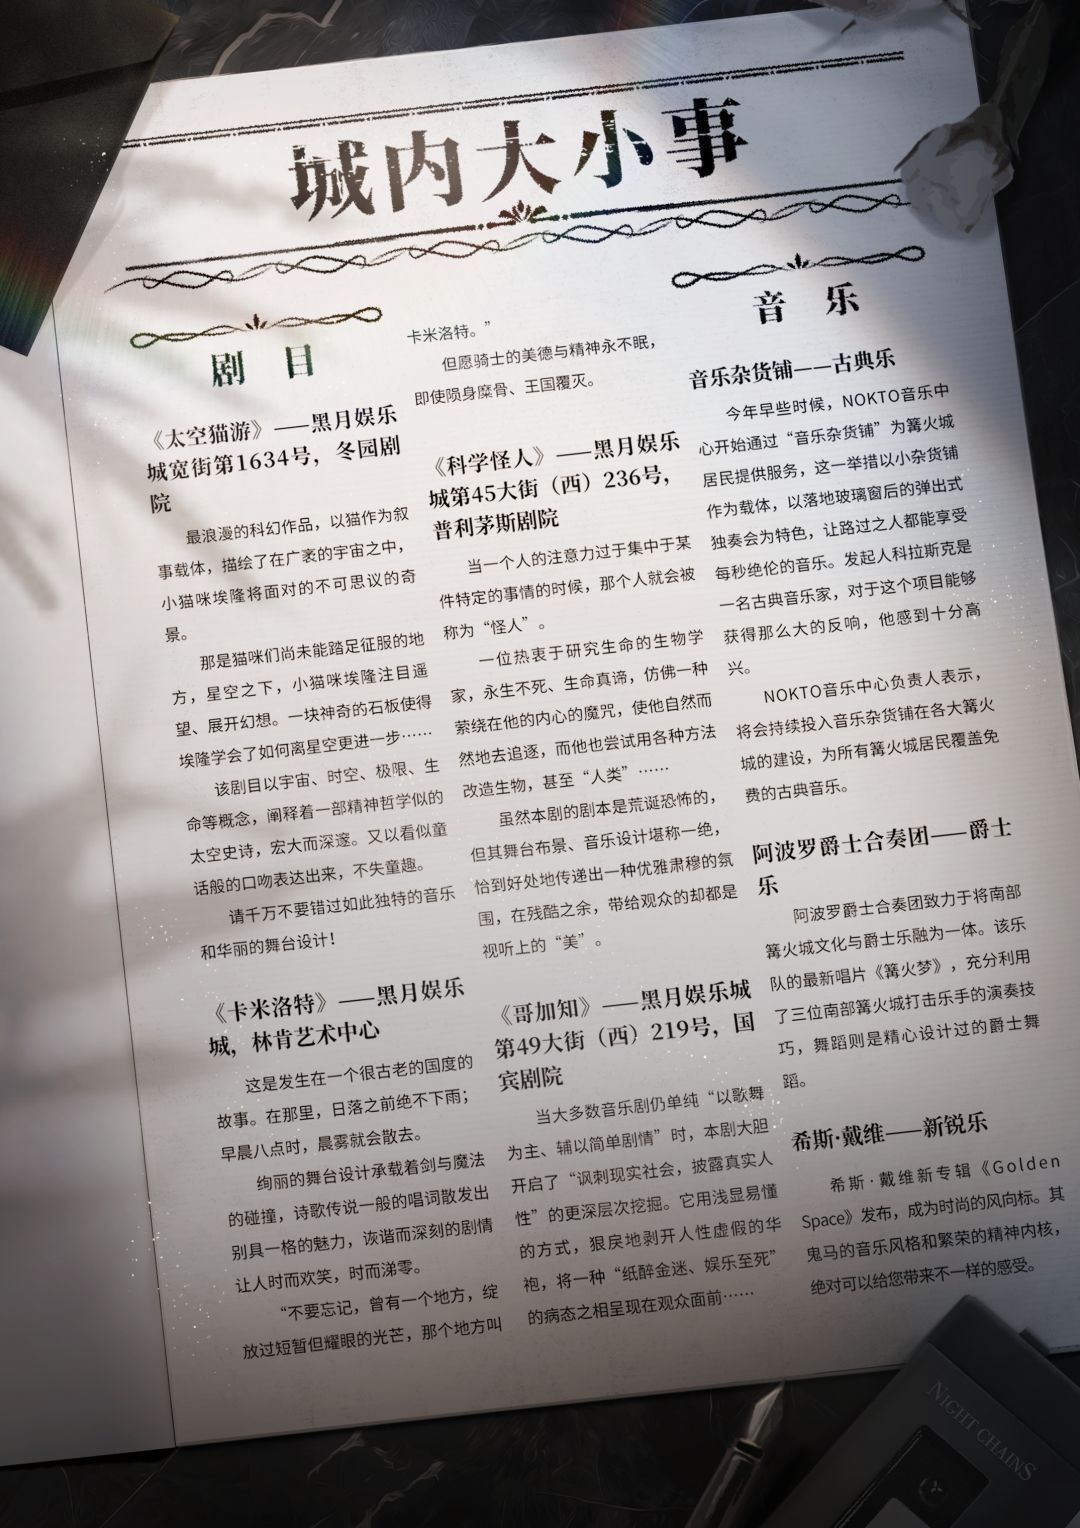 城内大小事
剧 目
《太空猫游》——黑月娱乐
城宽街第1634号，冬园剧
院
最浪漫的科幻作品，以猫作为叙
事载体，描绘了在广袤的宇宙之中，
小猫咪埃隆将面对的不可思议的奇
景。
那是猫咪们尚未能踏足征服的地
方，星空之下，小猫咪埃隆注目遥
望、展开幻想。一块神奇的石板使得
埃隆学会了如何离星空更进一步……
该剧目以宇宙、时空、极限、生
命等概念，阐释着一部精神哲学似的
太空史诗，宏大而深邃。又以看似童
话般的口吻表达出来，不失童趣。
请千万不要错过如此独特的音乐
和华丽的舞台设计！
《卡米洛特》——黑月娱乐
城，林肯艺术中心
这是发生在一个很古老的国度的
故事。在那里，日落之前绝不下雨；
早晨八点时，晨雾就会散去。
绚丽的舞台设计承载着剑与魔法
的碰撞，诗歌传说一般的唱词散发出
别具一格的魅力，诙谐而深刻的剧情
让人时而欢笑，时而涕零。
“不要忘记，曾有一个地方，绽
放过短暂但耀眼的光芒，那个地方叫
卡米洛特。”
但愿骑士的美德与精神永不眠，
即使陨身糜骨、王国覆灭。
《科学怪人》——黑月娱乐
城第45大街（西）236号，
普利茅斯剧院
当一个人的注意力过于集中于某
件特定的事情的时候，那个人就会被
称为“怪人”。
一位热衷于研究生命的生物学
家，永生不死、生命真谛，仿佛一种
萦绕在他的内心的魔咒，使他自然而
然地去追逐，而他也尝试用各种方法
改造生物，甚至“人类”……
虽然本剧的剧本是荒诞恐怖的，
但其舞台布景、音乐设计堪称一绝，
恰到好处地传递出一种优雅肃穆的氛
围，在残酷之余，带给观众的却都是
视听上的“美”。
《哥加知》——黑月娱乐城
第49大街（西）219号，国
宾剧院
当大多数音乐剧仍单纯“以歌舞
为主、辅以简单剧情”时，本剧大胆
开启了“讽刺现实社会，披露真实人
性”的更深层次挖掘。它用浅显易懂
的方式，狠戾地剥开人性虚假的华
袍，将一种“纸醉金迷、娱乐至死”
的病态之相呈现在观众面前……
音 乐
音乐杂货铺——古典乐
今年早些时候，NOKTO音乐中
心开始通过“音乐杂货铺”为篝火城
居民提供服务，这一举措以小杂货铺
作为载体，以落地玻璃窗后的弹出式
独奏会为特色，让路过之人都能享受
每秒绝伦的音乐。发起人科拉斯克是
一名古典音乐家，对于这个项目能够
获得那么大的反响，他感到十分高
兴。
NOKTO音乐中心负责人表示，
将会持续投入音乐杂货铺在各大篝火
城的建设，为所有篝火城居民覆盖免
费的古典音乐。
阿波罗爵士合奏团——爵士
乐
阿波罗爵士合奏团致力于将南部
篝火城文化与爵士乐融为一体。该乐
队的最新唱片《篝火梦》，充分利用
了三位南部篝火城打击乐手的演奏技
巧，舞蹈则是精心设计过的爵士舞
蹈。
希斯·戴维——新锐乐
希斯·戴维新专辑《Golden
Space》发布，成为时尚的风向标。其
鬼马的音乐风格和繁荣的精神内核，
绝对可以给您带来不一样的感受。
NIGHT CHAINS